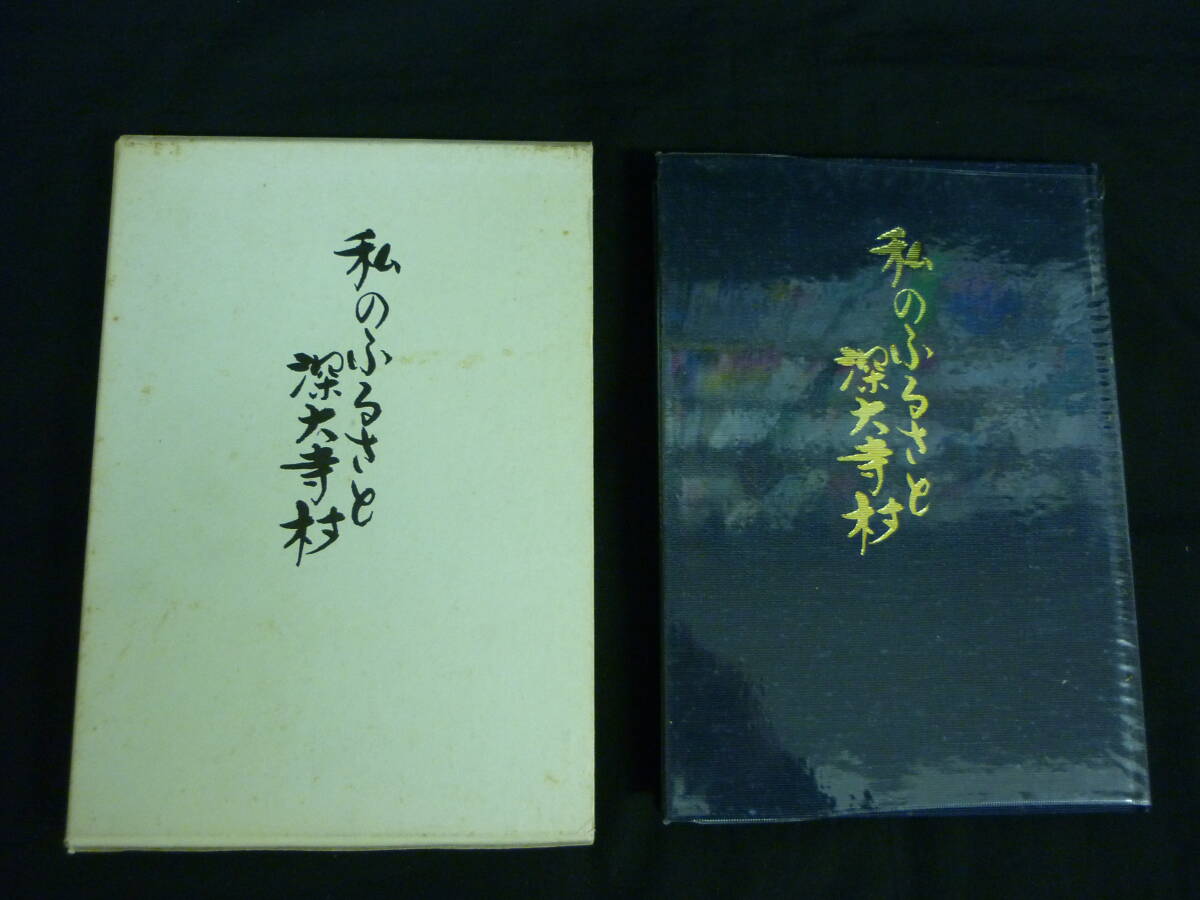 私のふるさと
深大寺村
私のふるさと
深大寺村